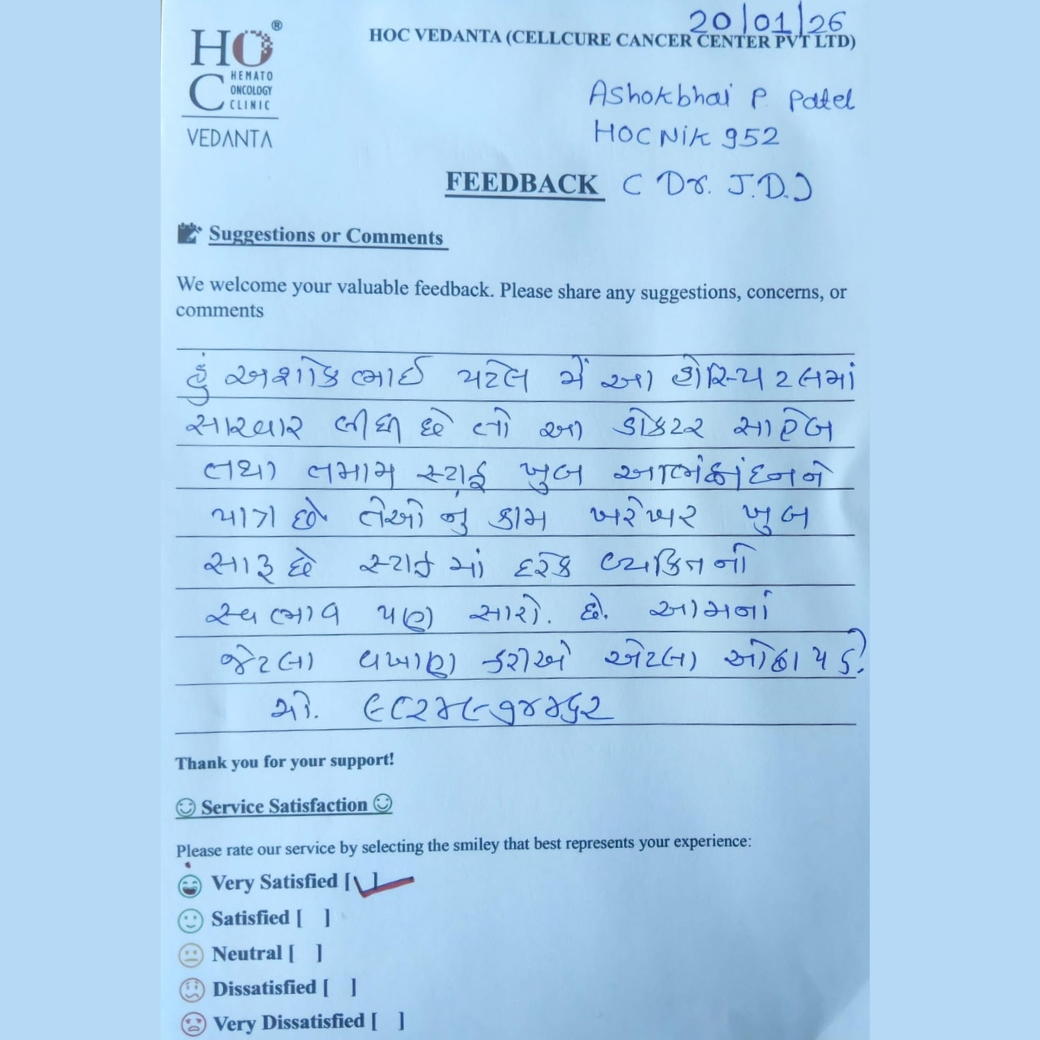 20/01/26
HOC
®
HEMATO
ONCOLOGY
CLINIC
VEDANTA
HOC VEDANTA (CELLCURE CANCER CENTER PVT LTD)
Ashokbhai P. Patel
HOC Nik 952
FEEDBACK ( Dr. J.D.)
Suggestions or Comments
We welcome your valuable feedback. Please share any suggestions, concerns, or
comments
હું અશોકભાઈ પટેલ મેં આ હોસ્પિટલમાં
સારવાર લીધી છે તો આ ડોકટર સાહેબ
તથા તમામ સ્ટાફ ખુબ
પાત્ર છે. તેઓનું કામ ખરેખર ખુબ
સારૂ છે સ્ટાફ માં દરેક વ્યકિતનો
સ્વભાવ પણ સારો. છે. આમનાં
જેટલા વખાણ કરીએ એટલા ઓછા પડે.
મો.
Thank you for your support!
Service Satisfaction
Please rate our service by selecting the smiley that best represents your experience:
Very Satisfied [✓]
Satisfied [ ]
Neutral [ ]
Dissatisfied [ ]
Very Dissatisfied [ ]